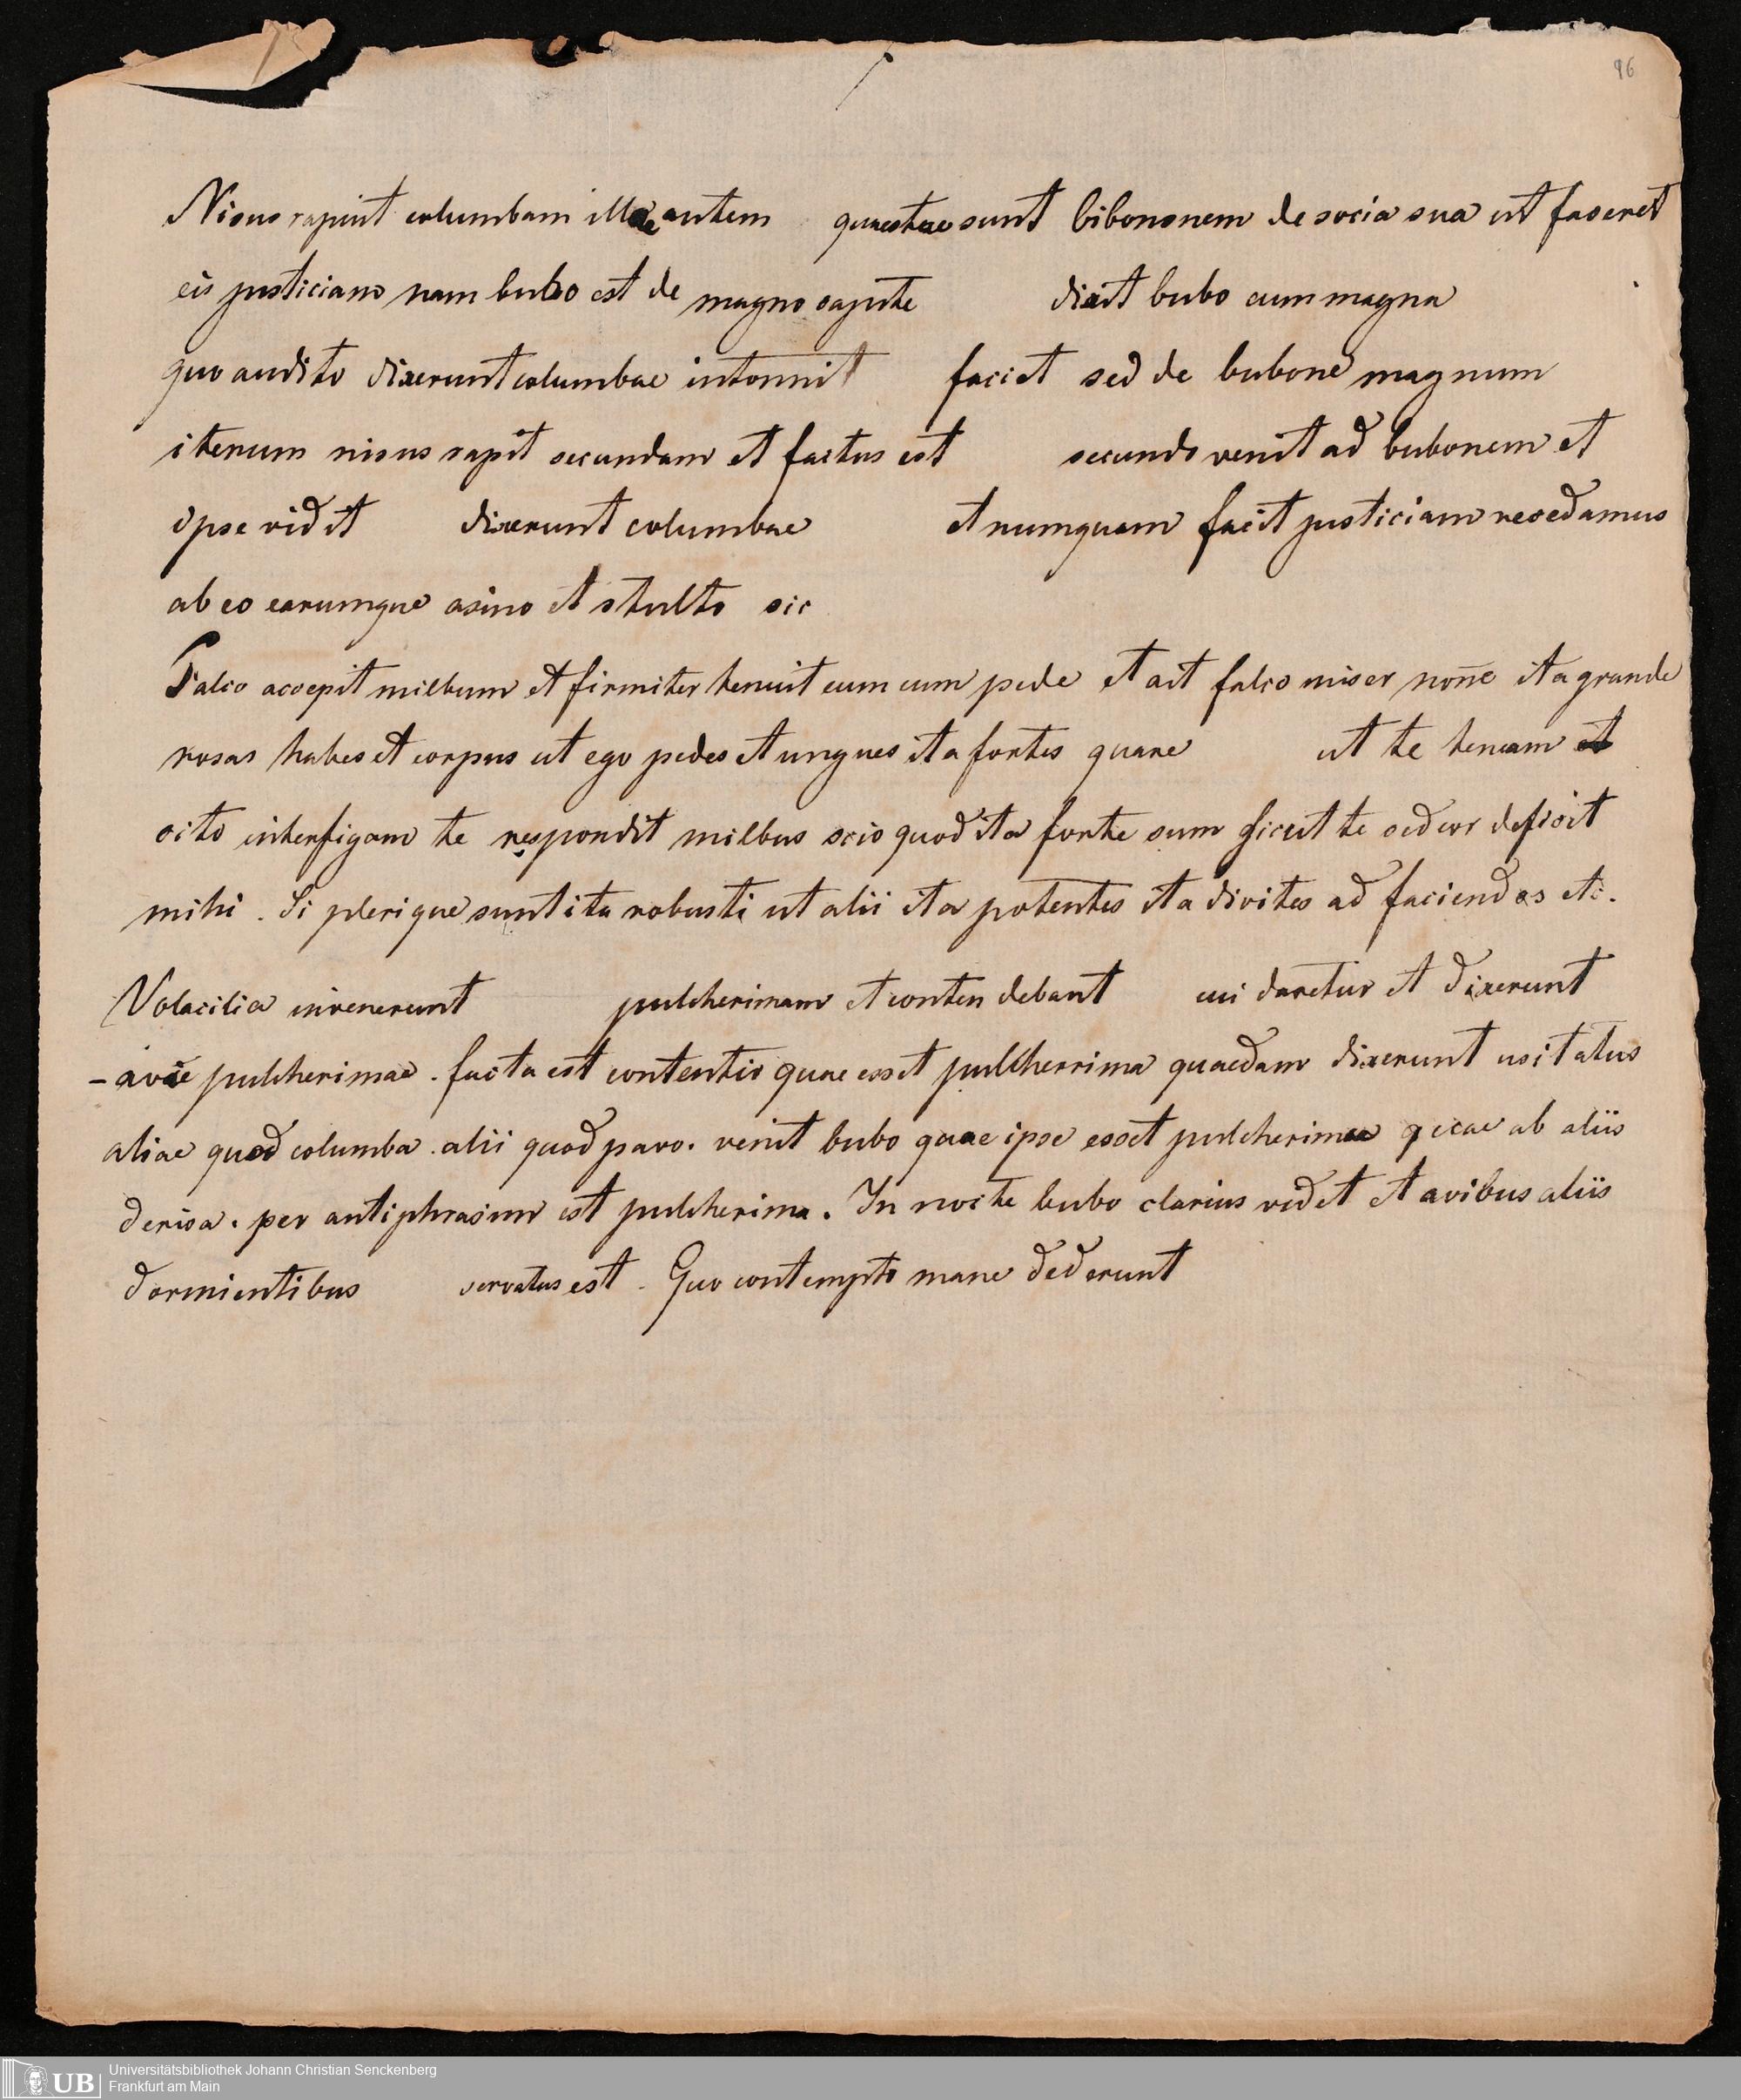 96
Nisus rapuit columbam illae autem quaestae sunt bibononem de socia sua ut faseret
eis justiciam nam bubo est de magno capite dixit bubo cum magna
quo audito dixerunt columbae intonnit faciet sed de bubone magnum
iterum nisus rapit secundam et factus est secundo venit ad bubonem et
ipse vidit dixerunt columbae et numquam facit justiciam recedamus
ab eo earumque asino et stulto sic
Falco accepit milbum et firmiter tenuit eum cum pede et ait falco miser non̄e ita grande
rosas habes et corpus ut ego pedes et ungues ita fortes quare ut te teneam et
cito interfigam te respondit milbus scio quod ita forte sum sicut te sed cor defisit
mihi. Si plerique sunt ita robusti ut alii ita potentes ita divites ad faciendos etc.
Volacilia invenerunt pulcherimam et contendebant cui daretur et dixerunt
- avie pulcherimae. facta est contentio quae esset pulcherrima quaedam dixerunt usitatus
aliae quod columba. alii quod pavo. venit bubo quae ipse esset pulcherimae ab aliis
derisa. per antiphrasim est pulcherima. In nocte bubo clarius videt et avibus aliis
dormientibus servatus est. Quo contempto mane dederunt
UB Universitätsbibliothek Johann Christian Senckenberg
Frankfurt am Main